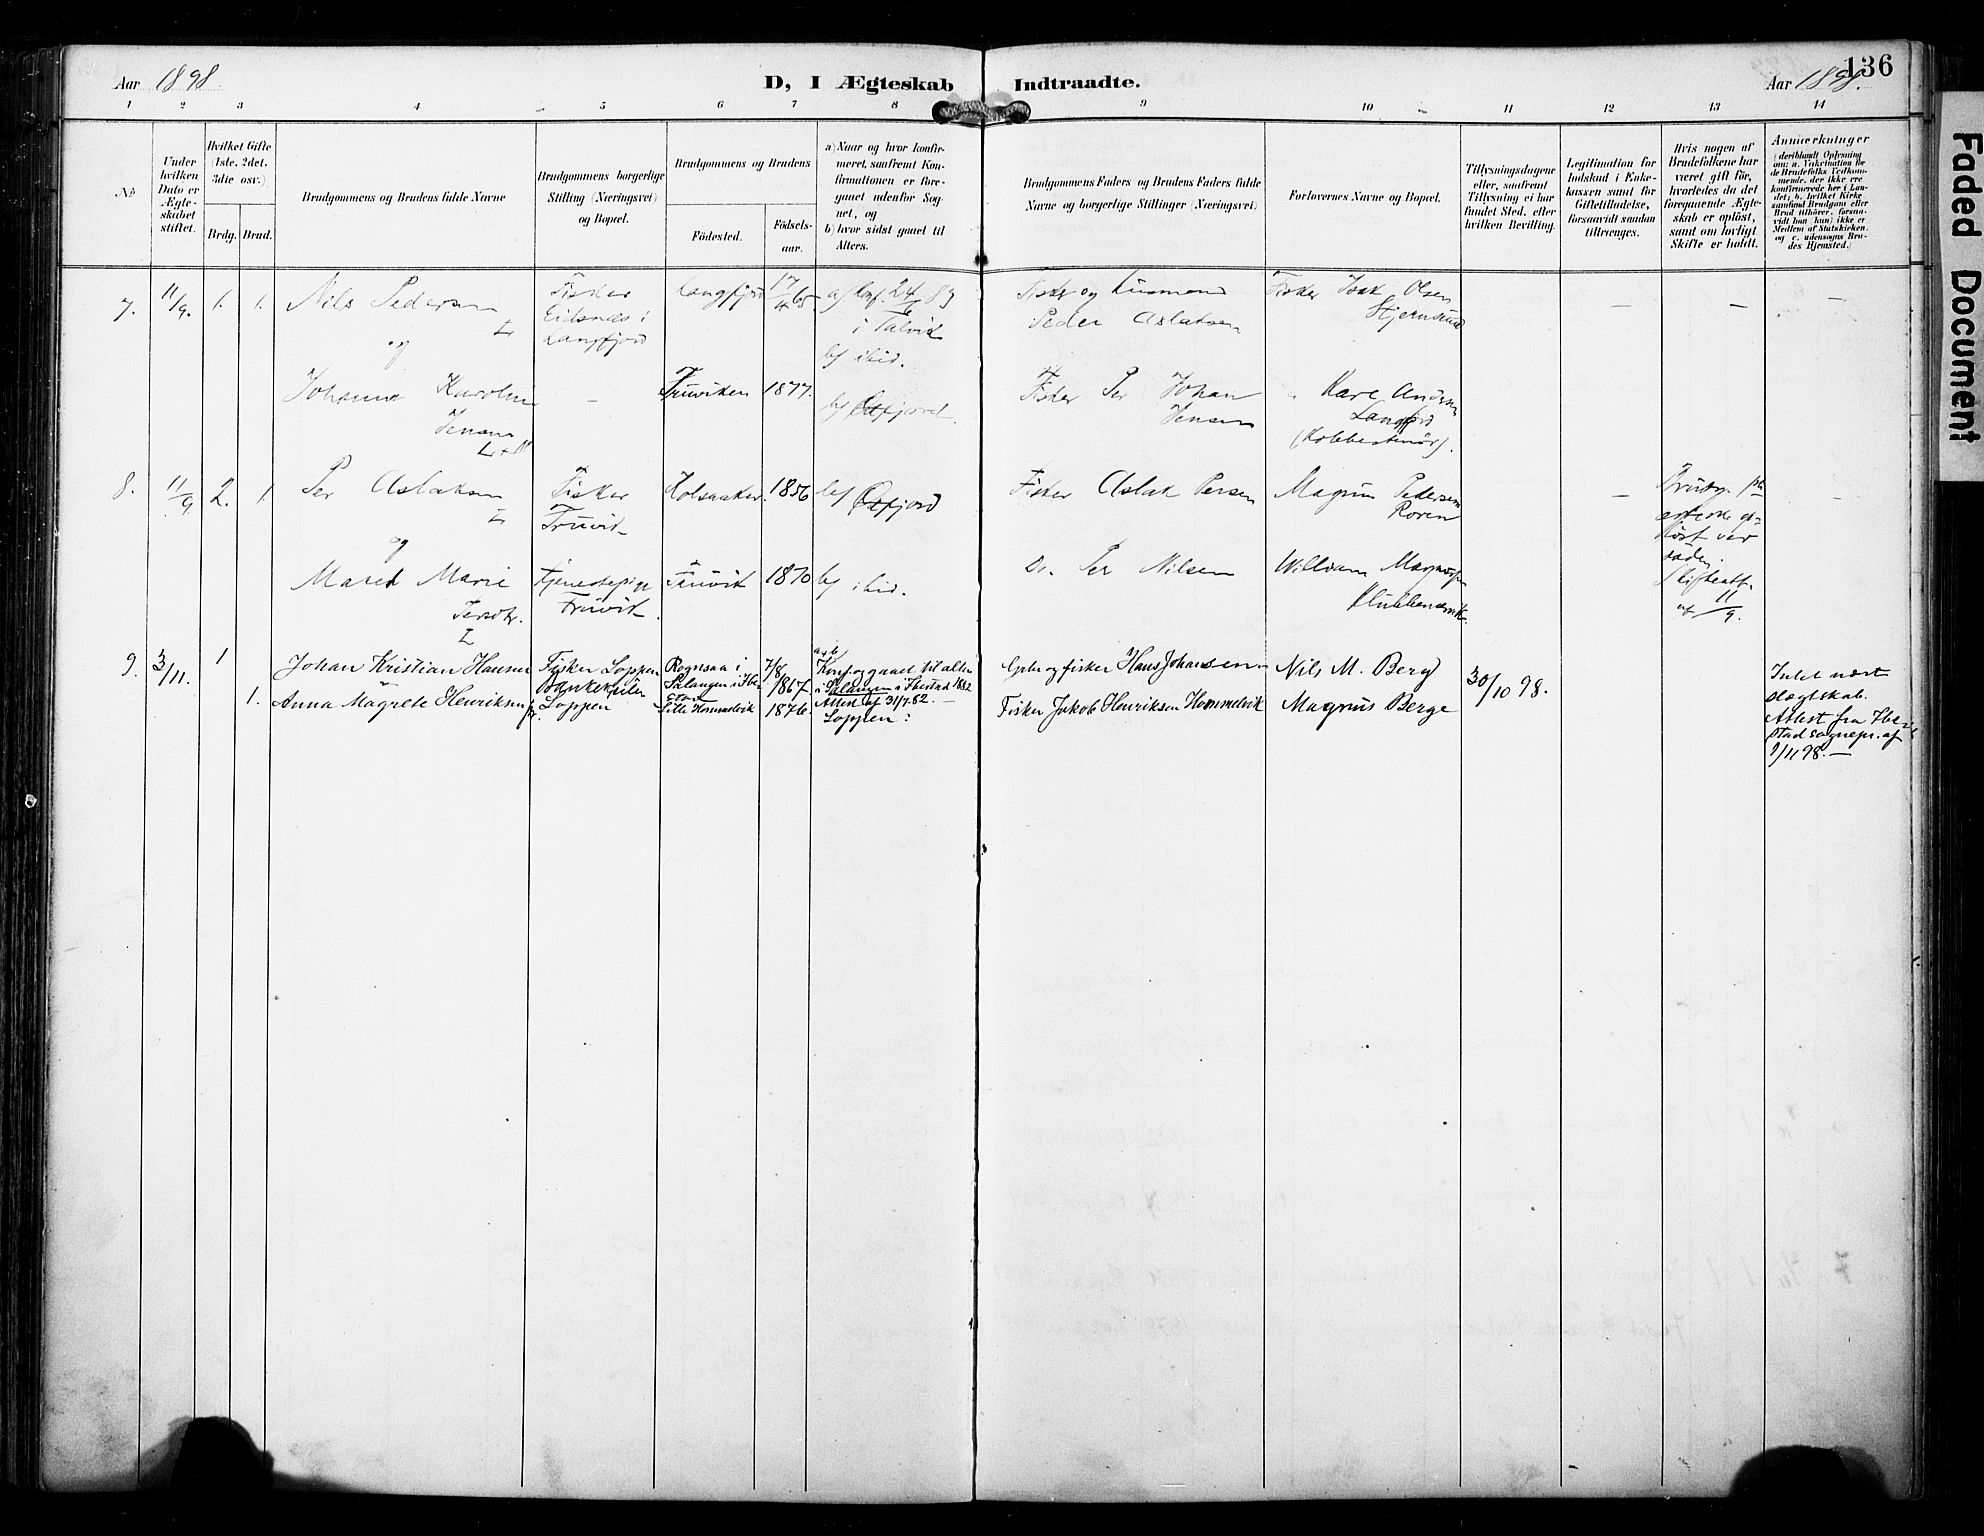 136
Aar 1898.
D, I Ægteskab Indtraadte.
Aar 1898.
1 2 3 4 5 6 7 8 9 10 11 12 13 14
No
Under hvilken Dato er Ægteskabet stiftet.
Hvilket Gifte (1ste, 2det, 3die osv.)
Brdg. Brud.
Brudgommens og Brudens fulde Navne
Brudgommens borgerlige Stilling (Næringsvei) og Bopæl.
Brudgommens og Brudens
Födested.
Födselsaar.
a) Naar og hvor konfirmeret, saafremt Konfirmationen er foregaaet udenfor Sognet, og
b) hvor sidst gaaet til Alters.
Brudgommens Faders og Brudens Faders fulde Navne og borgerlige Stillinger (Næringsvei)
Forlovernes Navne og Bopæl.
Tillysningsdagene eller, saafremt Tillysning ei har fundet Sted, efter hvilken Bevilling.
Legitimation for Indskud i Enkekassen samt for Giftetilladelse, forsaavidt saadan tiltrænges.
Hvis nogen af Brudefolkene har været gift för, hvorledes da det foregaaende Ægteskab er oplöst, samt om lovligt Skifte er holdt.
Anmærkninger (deriblandt Oplysning om: a. Vakcination for de Brudefolks Vedkommende, der ikke ere konfirmerede her i Landet; b. hvilket Kirkesamfund Brudgom eller Brud tilhörer, forsaavidt han (hun) ikke er Medlem af Statskirken, og c. udensogns Brudes Hjemsted.)
7. 11/9. 1. 1. Nils Pedersen L
Fisker Eidsnes i Langfjord
Langfjord 17/4 65
a/ konf. 24/6 83 i Talvik
b/ ibid.
Fisker og husmand Peder Aslaksen
Fisker Isak Olsen Stjernsund
og
Johanna Karolin Jensen L+N
Fruviken 1877.
b/ Öxfjord.
Fisker Per Johan Jensen
Karl Andersen Langfjord
8. 11/9 2. 1. Per Aslaksen L
Fisker Fruvik
Kolsaaker. 1856 b/ Öxfjord
Fisker Aslak Persen
Magnus Pedersen
og
Mared Marie Persdtr. L
Tjenestepige Fruvik.
Fruvik 1870 b/ ibid.
Do. Per Nilsen
William
11/9.
9. 3/11. 1 Johan Kristian Hansen
Fisker Loppen
Rognsaa i Salangen i Ibe
7/8 1867.
a+b Konf. og gaaet til alter i Salangen i Ibestad 1882
Attest af 31/7 62.
Gbr og fisker Hans Johansen
Nils M. Berg
30/10 98.
1. Anna Magrete Henriksen
Loppen
Lille Hommelvik 1876.
Loppen:
Fisker Jakob Henriksen Hommelvik
Magnus Berge
Intet nært slegtskab.
Attest fra Ibestad sognepr. af 9/11 98.
Faded Document